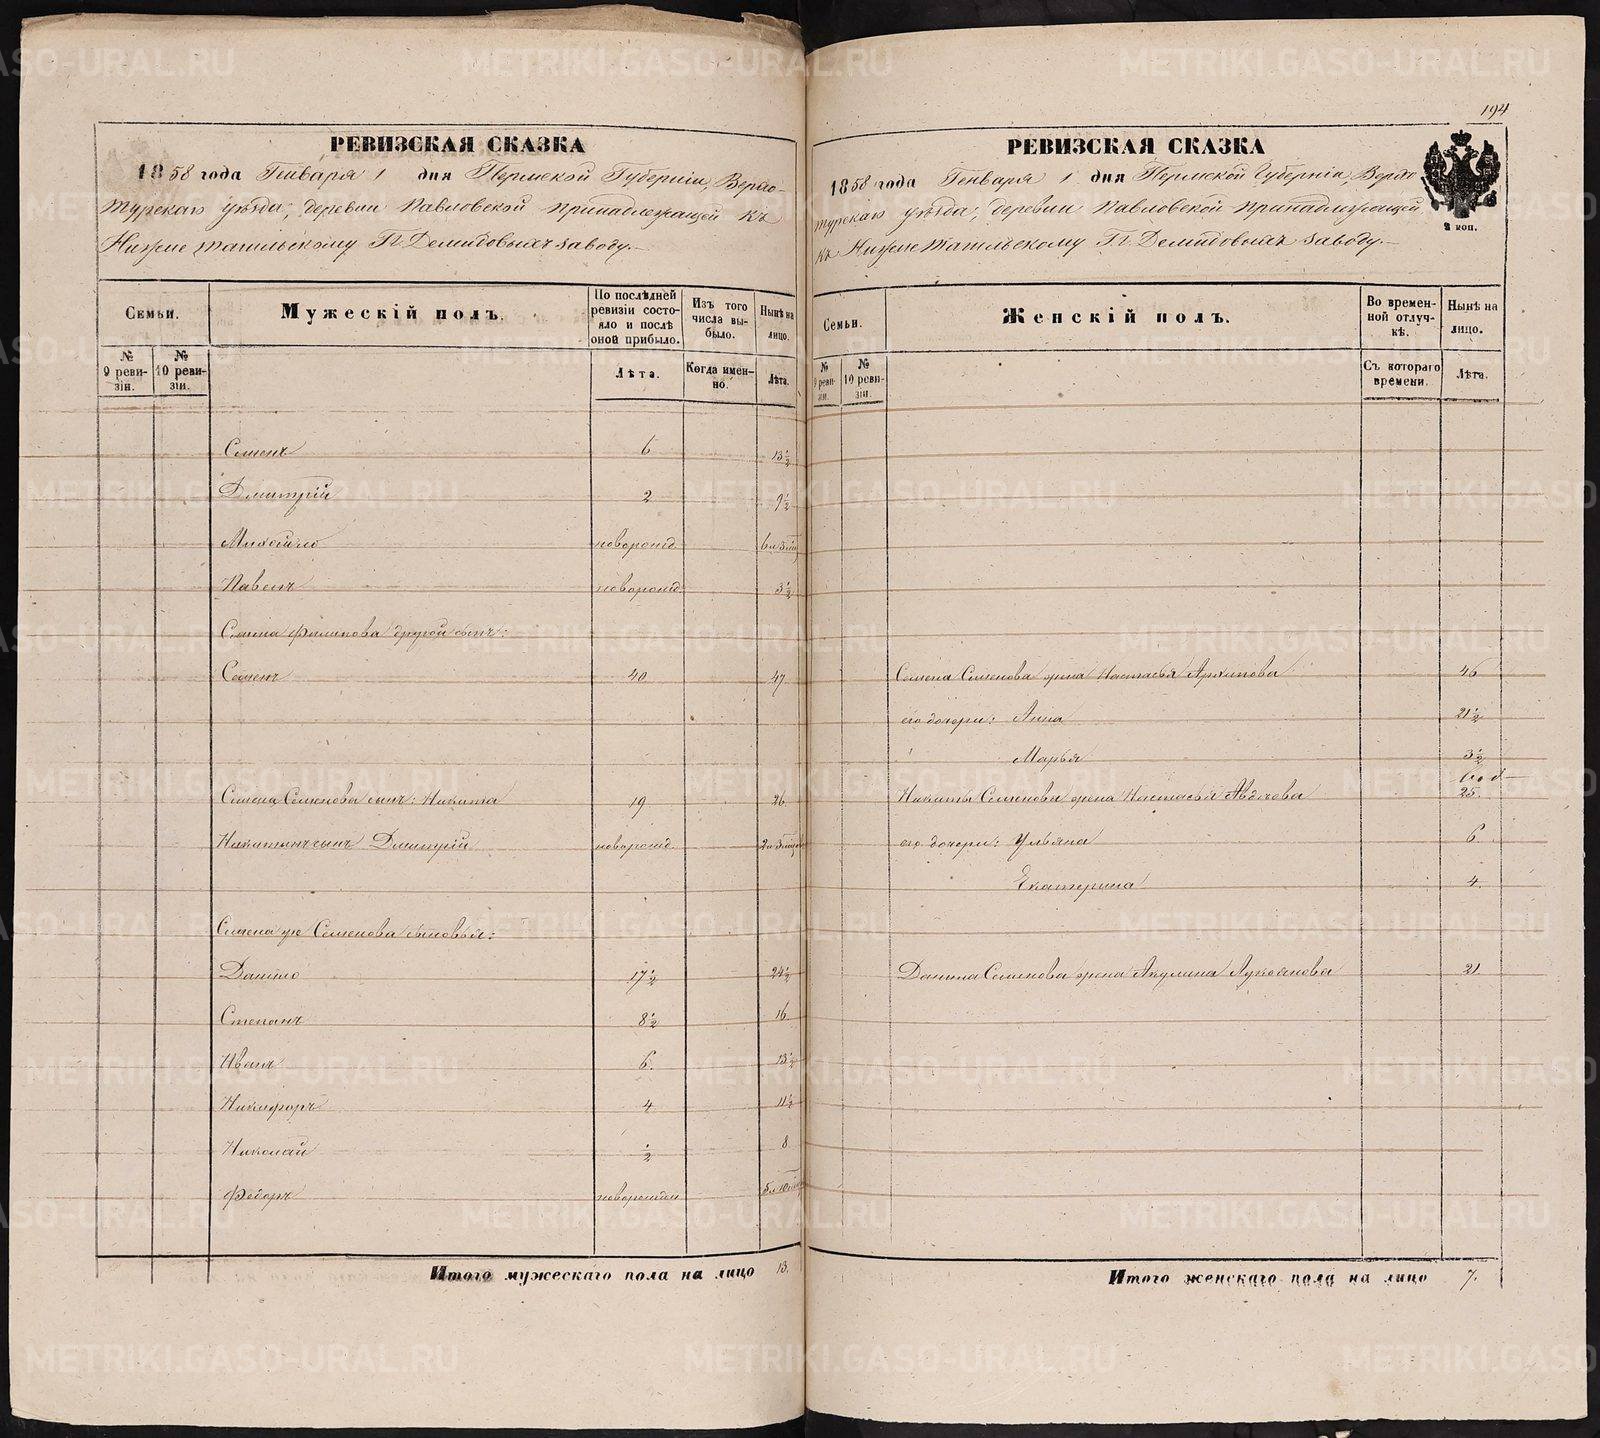 194
РЕВИЗСКАЯ СКАЗКА
1858 года Генваря 1 дня Пермской Губерніи, Верхо-
турскаго уѣзда, деревни Павловской принадлежащей къ
Нижнетагильскому Гг. Демидовыхъ заводу.
Семьи.
Мужескій полъ.
По послѣдней ревизіи состояло и послѣ оной прибыло.
Изъ того числа выбыло.
Нынѣ на лицо.
№ 9 ревизіи.
№ 10 ревизіи.
Лѣта.
Когда именно.
Лѣта.
Семенъ 6 13½
Дмитрій 2 9½
Михайло новорожд.
Павелъ новорожд. 3½
Семена Филипова другой сынъ:
Семенъ 40 47
Семена Семенова сынъ: Никита 19 26
Никитинъ сынъ Дмитрій новорожд.
Семена же Семенова сыновья:
Данило 17½ 24½
Степанъ 8½ 16
Иванъ 6. 13½
Никифоръ 4 11½
Николай ½ 8
Федоръ
Итого мужескаго пола на лицо 13.
РЕВИЗСКАЯ СКАЗКА
1858 года Генваря 1 дня Пермской Губерніи, Верхо-
турскаго уѣзда, деревни Павловской принадлежащей
къ Нижнетагильскому Гг. Демидовыхъ заводу.
2 коп.
Семьи.
Женскій полъ.
Во временной отлучкѣ.
Нынѣ на лицо.
№ 9 ревизіи.
№ 10 ревизіи.
Съ котораго времени.
Лѣта.
Семена Семенова жена Настасья Архипова 46
его дочери: Анна 21½
Марья 3½
Никиты Семенова жена Настасья 25.
его дочери: Ульяна 6
Екатерина 4.
Данила Семенова жена Акулина Лукоянова 21.
Итого женскаго пола на лицо 7.
METRIKI.GASO-URAL.RU